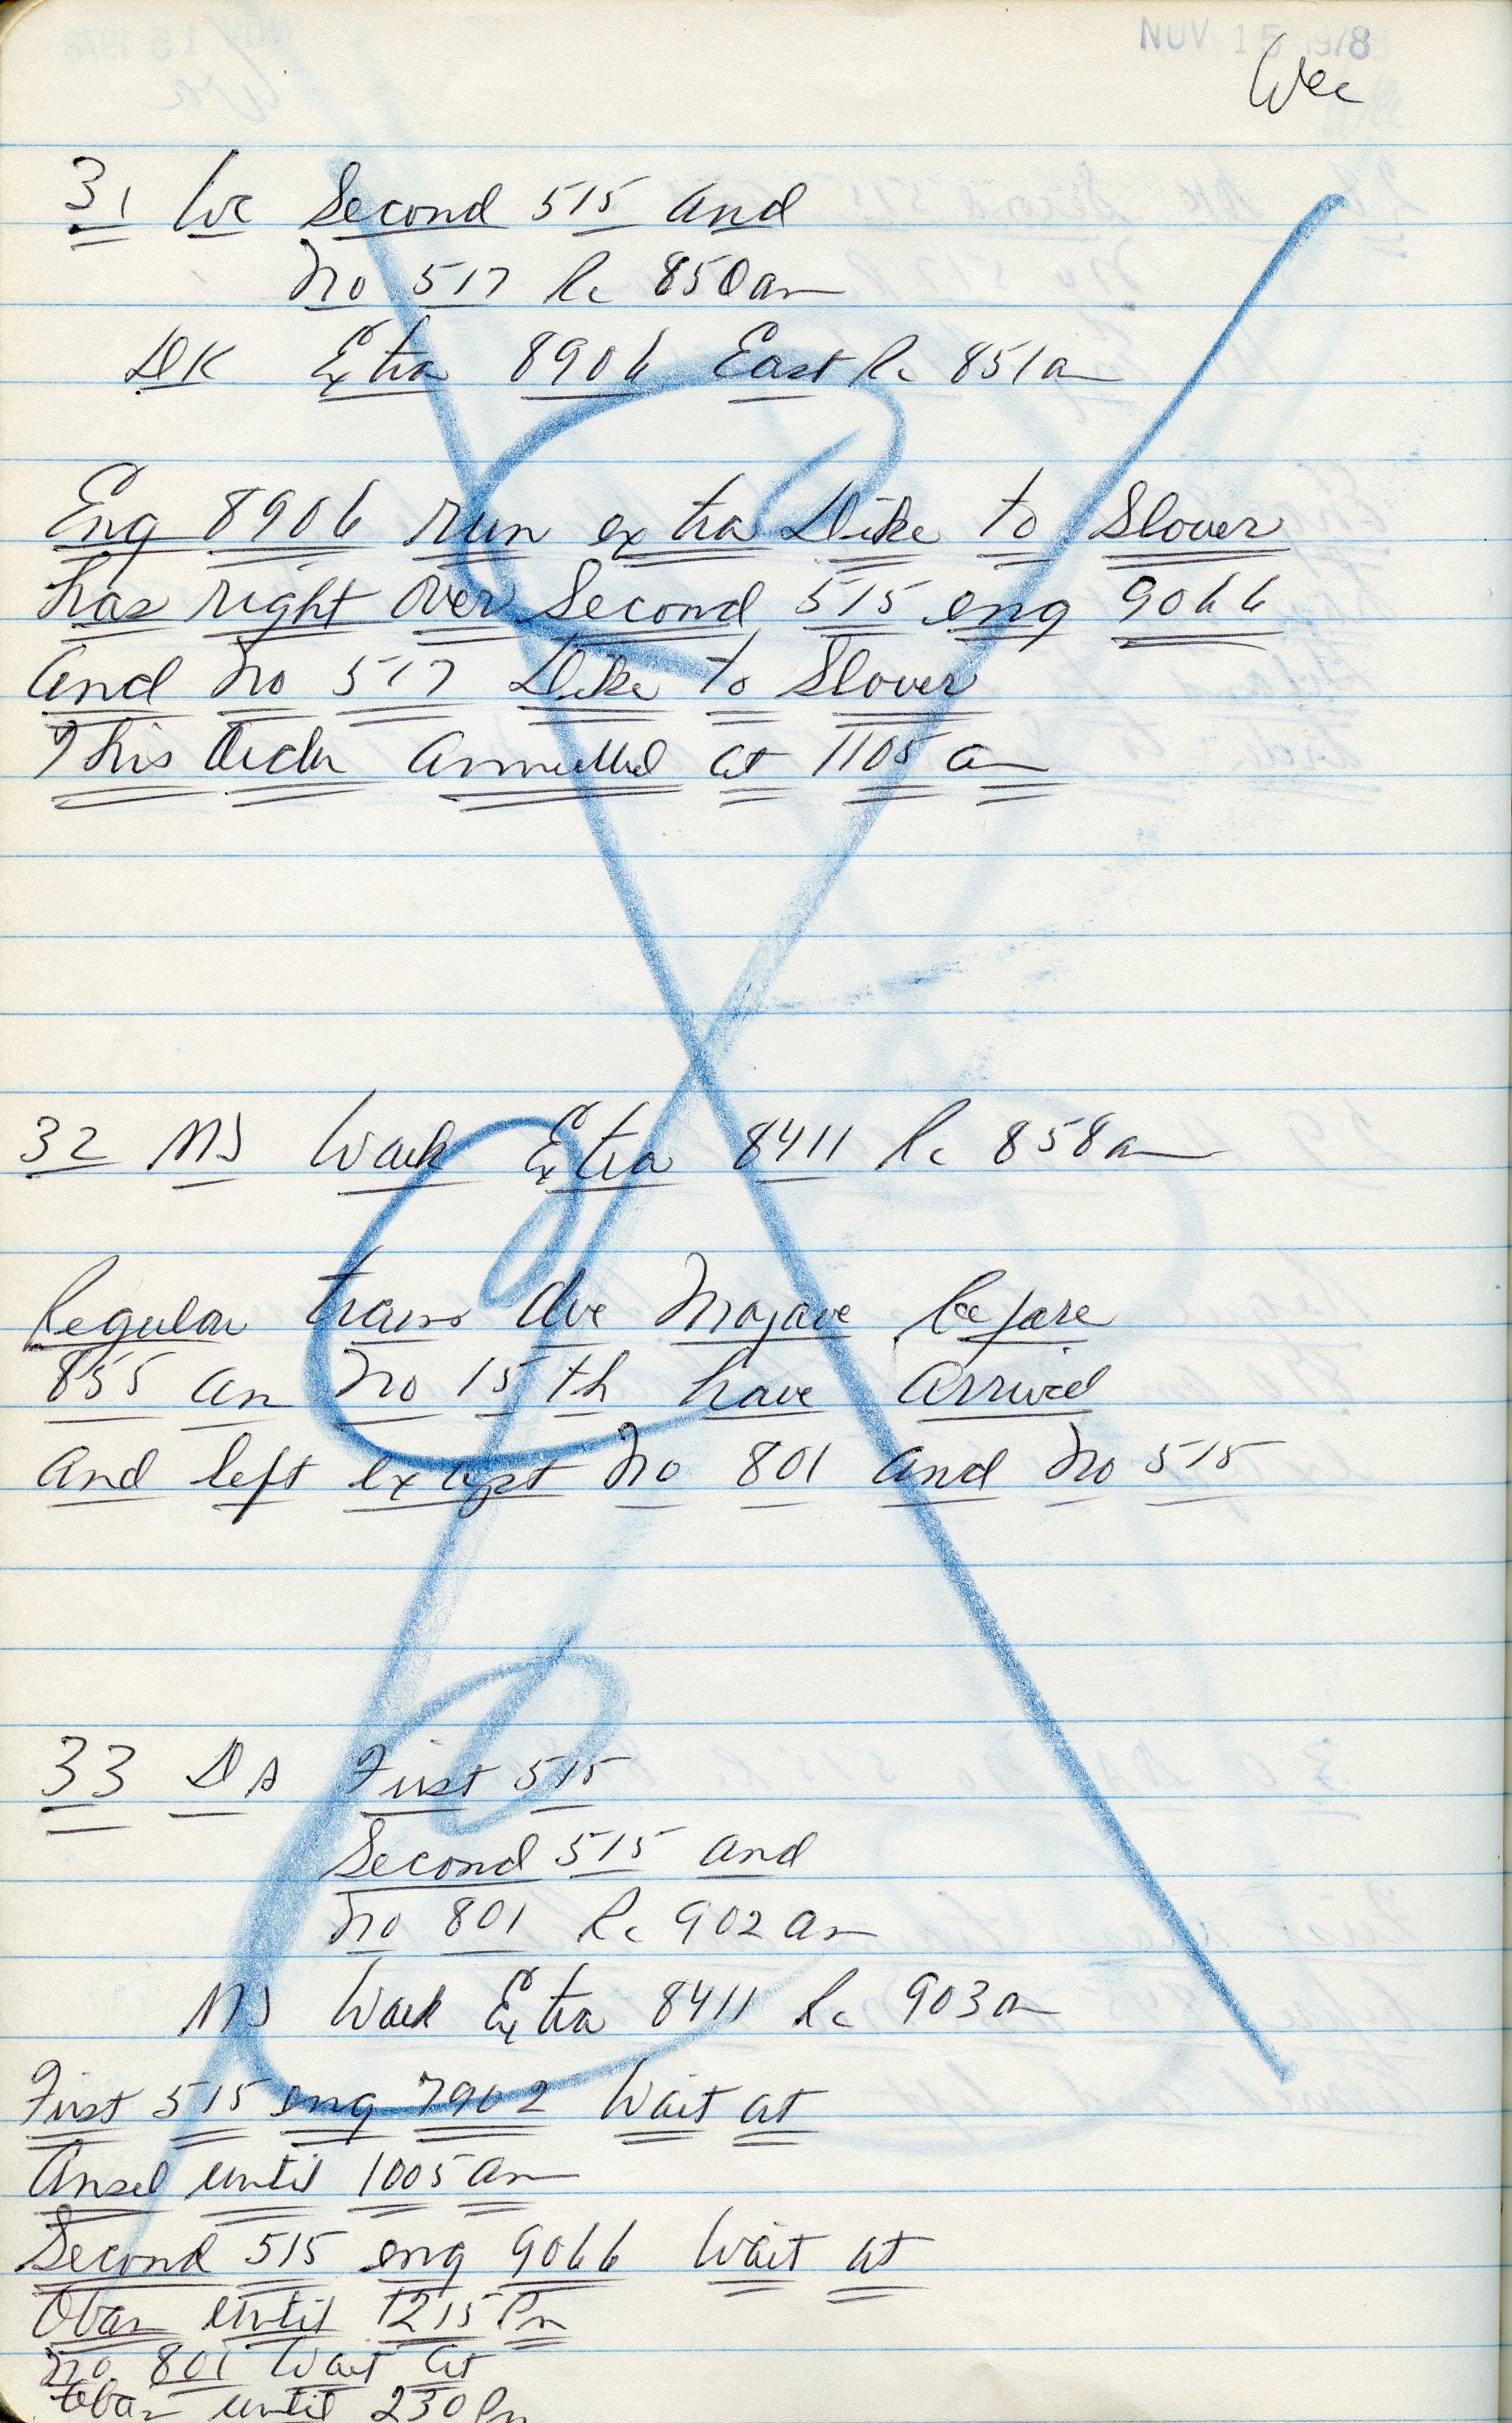 NOV 15 1978
Wec
31 WC Second 515 and
No 517 Rc 850am
DK Extra 8906 East Rc 851am
Eng 8906 run extra Dike to Slover
has right over Second 515 eng 9066
and No 517 Dike to Slover
This Order annulled at 1105 am
32 MJ Work Extra 8411 Rc 858am
Regular trains due Mojave before
855 am No 15th have arrived
and left except No 801 and No 515
33 DA First 515
Second 515 and
No 801 Rc 902 am
MJ Work Extra 8411 Rc 903am
First 515 eng 7902 Wait at
Ansel until 1005 am
Second 515 eng 9066 Wait at
Oban until 1215 Pm
No 801 Wait at
Oban until 230 Pm